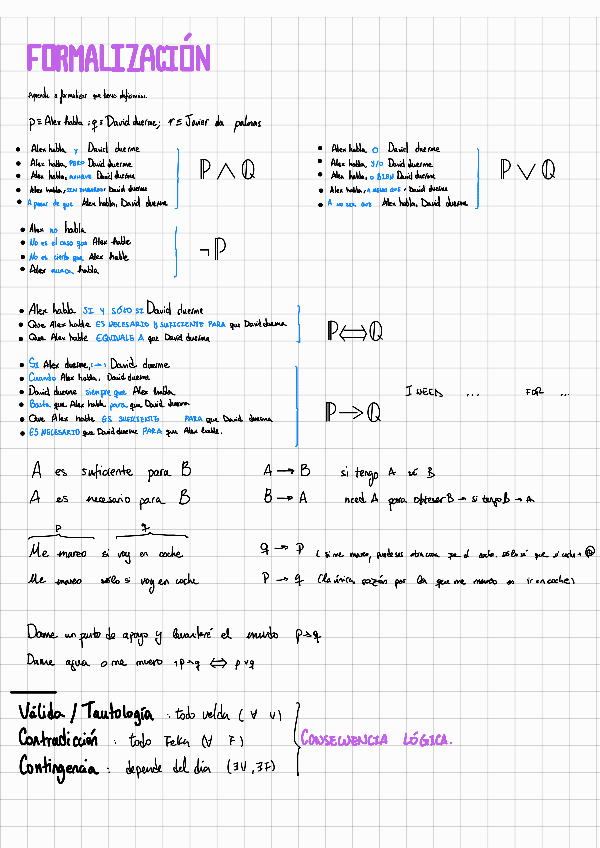 FORMALIZACIÓN
Aprende a formalizar que tienes deficiencias.
p ≡ Alex habla ; q ≡ David duerme; r ≡ Javier da palmas
• Alex habla y David duerme
• Alex habla, PERO David duerme
• Alex habla, AUNQUE David duerme
• Alex habla, SIN EMBARGO David duerme
• A pesar de que Alex habla, David duerme
P ∧ Q
• Alex habla O David duerme
• Alex habla, Y/O David duerme
• Alex habla, O BIEN David duerme
• Alex habla, A MENOS QUE, David duerme
• A NO SER QUE Alex habla, David duerme
P ∨ Q
• Alex no habla
• No es el caso que Alex hable
• No es cierto que Alex hable
• Alex nunca habla
¬ P
• Alex habla SI Y SÓLO SI David duerme
• Que Alex hable ES NECESARIO Y SUFICIENTE PARA que David duerma
• Que Alex hable EQUIVALE A que David duerma
P ⟺ Q
• SI Alex duerme, (→) David duerme
• Cuando Alex habla, David duerme
• David duerme siempre que Alex habla
• Basta que Alex hable para que David duerma
• Que Alex hable ES SUFICIENTE PARA que David duerma
• ES NECESARIO que David duerme PARA que Alex hable.
P → Q
I NEED ... FOR ...
A es suficiente para B A → B si tengo A B
A es necesario para B B → A need A para obtener B → si tengo B → A
p q
Me mareo si voy en coche q → p
Me mareo sólo si voy en coche p → q (la única razón por la que me mareo es ir en coche)
Dame un punto de apoyo y levantaré el mundo p→q
Dame agua o me muero ¬p→q ⟺ p∨q
Válida / Tautología : todo velda (∀ V)
Contradicción : todo Felka (∀ F)
Contingencia : depende del día (∃V, ∃F)
CONSECUENCIA LÓGICA.